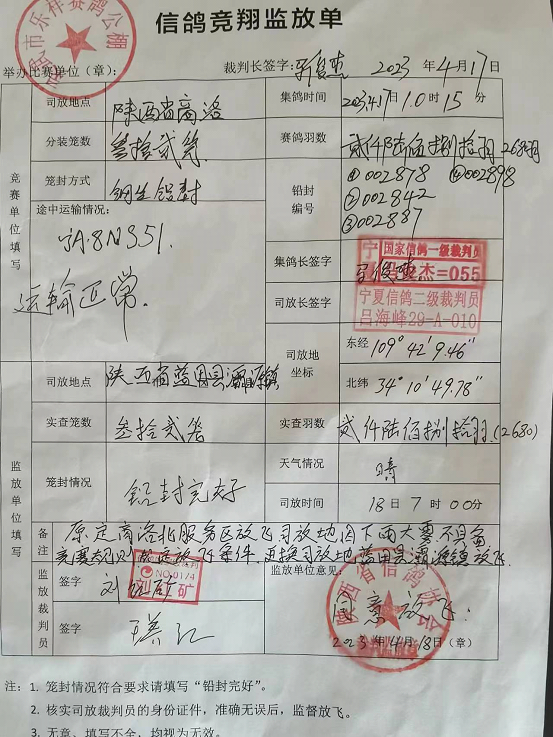 信鸽竞翔监放单
举办比赛单位（章）： 裁判长签字： 2023 年4月17日
竞赛单位填写
司放地点 陕西省商洛 集鸽时间 2023.4.17日 10时15分
分装笼数 叁拾贰笼 赛鸽羽数 贰仟陆佰捌拾羽 2680羽
笼封方式 铅封 铅封编号 ①002878 ④002898
②002842
③002887
途中运输情况：
宁A·8N351.
运输正常.
集鸽长签字
宁 国家信鸽一级裁判员
杰=055
司放长签字
宁夏信鸽二级裁判员
吕海峰29-A-010
司放地坐标 东经 109°42′9.46″
北纬 34°10′49.78″
监放单位填写
司放地点 陕西省蓝田县灞源镇
实查笼数 叁拾贰笼 实查羽数 贰仟陆佰捌拾羽.(2680)
笼封情况 铅封完好 天气情况 晴
司放时间 18日7时00分
备注 原定商洛北服务区放飞司放地因下雨大雾不具备
竞赛规则 放飞条件.更换司放地蓝田县灞源镇放飞.
监放裁判员
签字 刘 矿
NO.0174
签字
监放单位意见
同意放飞.
陕西省信鸽协会
2023年4月18日（章）
注：1. 笼封情况符合要求请填写“铅封完好”。
2. 核实司放裁判员的身份证件，准确无误后，监督放飞。
3. 无章、填写不全，均视为无效。